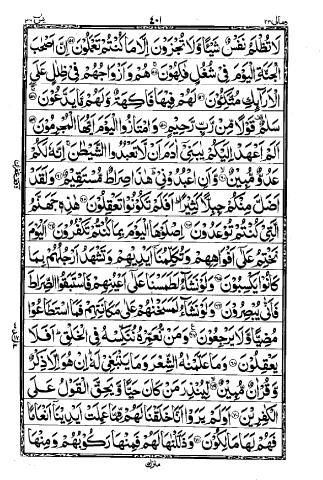 يس ٣٦ ٤٠١ ومالى ٢٣
لَا تُظْلَمُ نَفْسٌ شَيْئًا وَّلَا تُجْزَوْنَ اِلَّا مَا كُنْتُمْ تَعْمَلُوْنَ ۝ اِنَّ اَصْحٰبَ
الْجَنَّةِ الْيَوْمَ فِيْ شُغُلٍ فٰكِهُوْنَ ۝ هُمْ وَاَزْوَاجُهُمْ فِيْ ظِلٰلٍ عَلَى
الْاَرَآئِكِ مُتَّكِـُٔوْنَ ۝ لَهُمْ فِيْهَا فَاكِهَةٌ وَّلَهُمْ مَّا يَدَّعُوْنَ ۝
سَلٰمٌ قَوْلًا مِّنْ رَّبٍّ رَّحِيْمٍ ۝ وَامْتَازُوا الْيَوْمَ اَيُّهَا الْمُجْرِمُوْنَ ۝
اَلَمْ اَعْهَدْ اِلَيْكُمْ يٰبَنِيْٓ اٰدَمَ اَنْ لَّا تَعْبُدُوا الشَّيْطٰنَ اِنَّهٗ لَكُمْ
عَدُوٌّ مُّبِيْنٌ ۝ وَّاَنِ اعْبُدُوْنِيْ هٰذَا صِرَاطٌ مُّسْتَقِيْمٌ ۝ وَلَقَدْ
اَضَلَّ مِنْكُمْ جِبِلًّا كَثِيْرًا اَفَلَمْ تَكُوْنُوْا تَعْقِلُوْنَ ۝ هٰذِهٖ جَهَنَّمُ
الَّتِيْ كُنْتُمْ تُوْعَدُوْنَ ۝ اِصْلَوْهَا الْيَوْمَ بِمَا كُنْتُمْ تَكْفُرُوْنَ ۝ اَلْيَوْمَ
نَخْتِمُ عَلٰٓى اَفْوَاهِهِمْ وَتُكَلِّمُنَآ اَيْدِيْهِمْ وَتَشْهَدُ اَرْجُلُهُمْ بِمَا
كَانُوْا يَكْسِبُوْنَ ۝ وَلَوْ نَشَآءُ لَطَمَسْنَا عَلٰٓى اَعْيُنِهِمْ فَاسْتَبَقُوا الصِّرَاطَ
فَاَنّٰى يُبْصِرُوْنَ ۝ وَلَوْ نَشَآءُ لَمَسَخْنٰهُمْ عَلٰى مَكَانَتِهِمْ فَمَا اسْتَطَاعُوْا
مُضِيًّا وَّلَا يَرْجِعُوْنَ ۝ وَمَنْ نُّعَمِّرْهُ نُنَكِّسْهُ فِي الْخَلْقِ اَفَلَا
يَعْقِلُوْنَ ۝ وَمَا عَلَّمْنٰهُ الشِّعْرَ وَمَا يَنْۢبَغِيْ لَهٗ اِنْ هُوَ اِلَّا ذِكْرٌ
وَّقُرْاٰنٌ مُّبِيْنٌ ۝ لِّيُنْذِرَ مَنْ كَانَ حَيًّا وَّيَحِقَّ الْقَوْلُ عَلَى
الْكٰفِرِيْنَ ۝ اَوَلَمْ يَرَوْا اَنَّا خَلَقْنَا لَهُمْ مِّمَّا عَمِلَتْ اَيْدِيْنَآ اَنْعَامًا
فَهُمْ لَهَا مٰلِكُوْنَ ۝ وَذَلَّلْنٰهَا لَهُمْ فَمِنْهَا رَكُوْبُهُمْ وَمِنْهَا
منزل